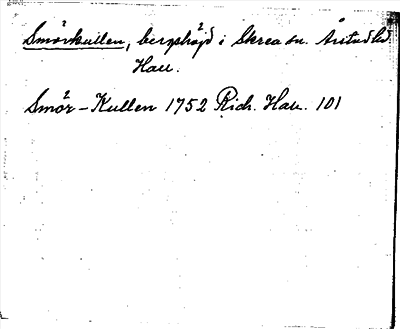 Smörkullen, bergshöjd i Skrea sn. Årstad hd
Hall.
Smör-Kullen 1752 Rich. Hall. 101